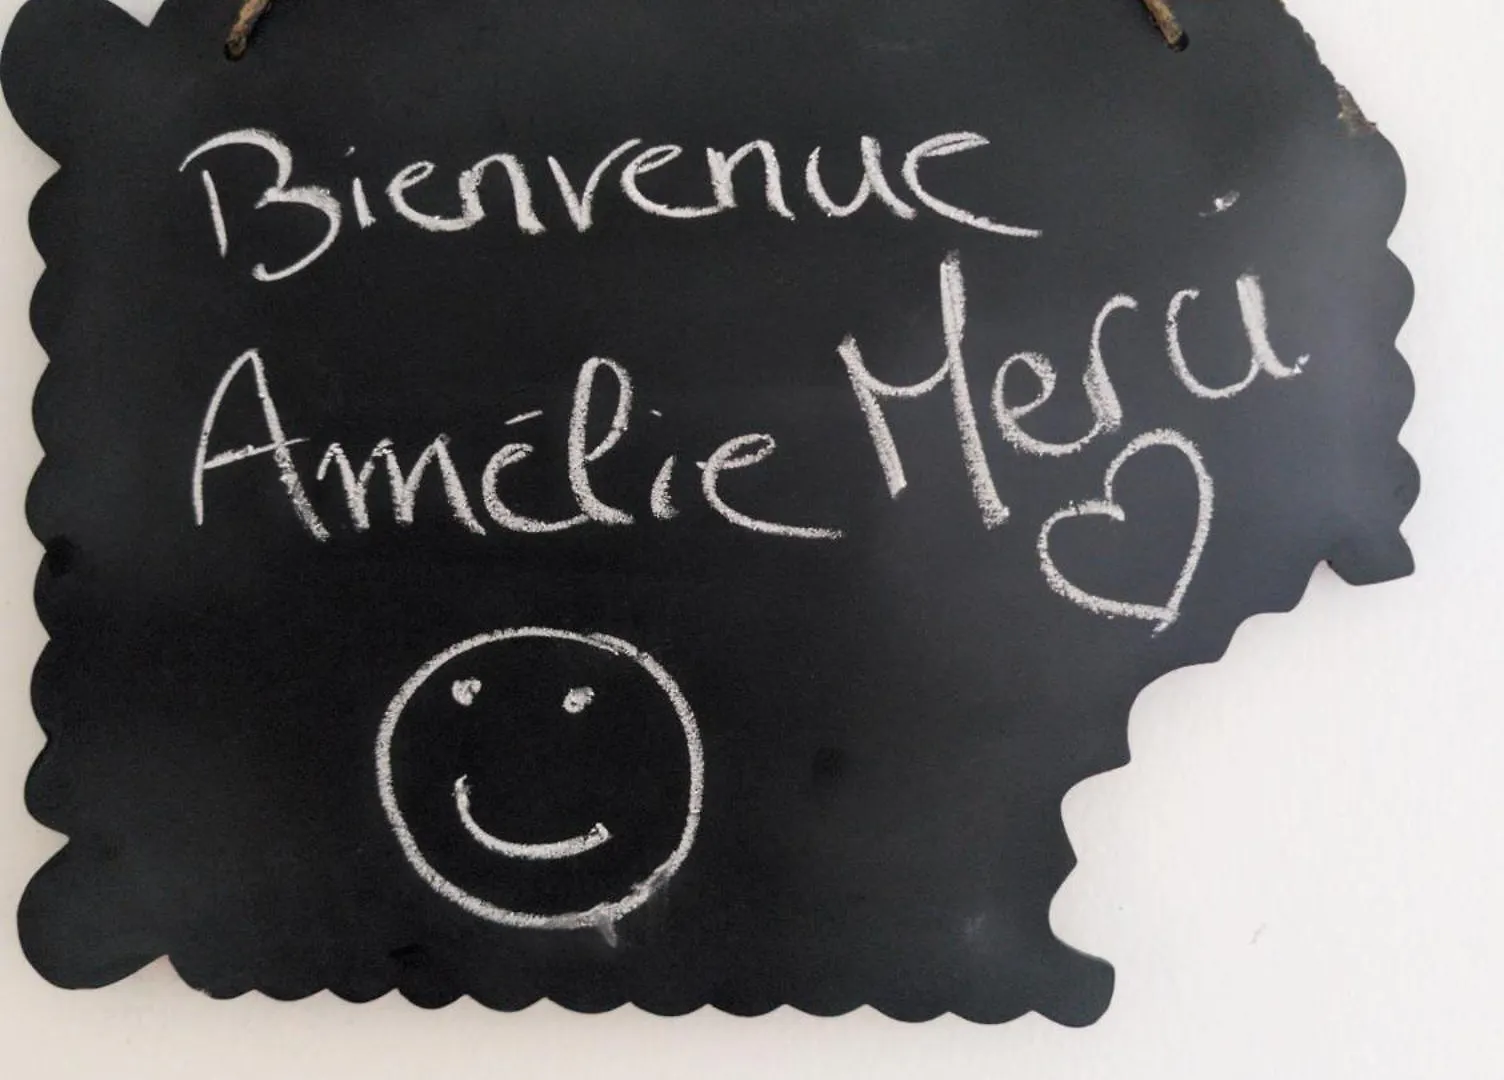 Bienvenue
Amélie Merci